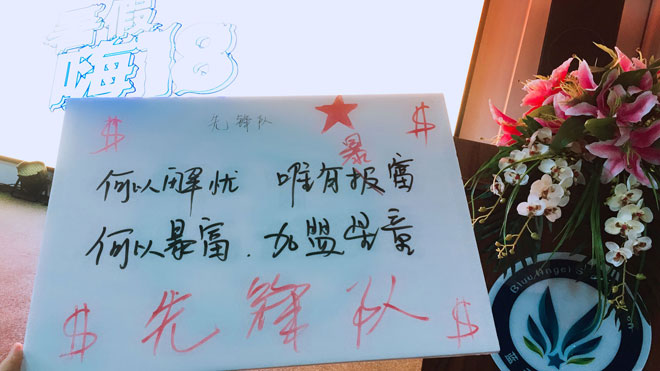 嗨18
先锋队
暴
何以解忧 唯有报富
何以暴富.加盟
先锋队
Blue Angel S